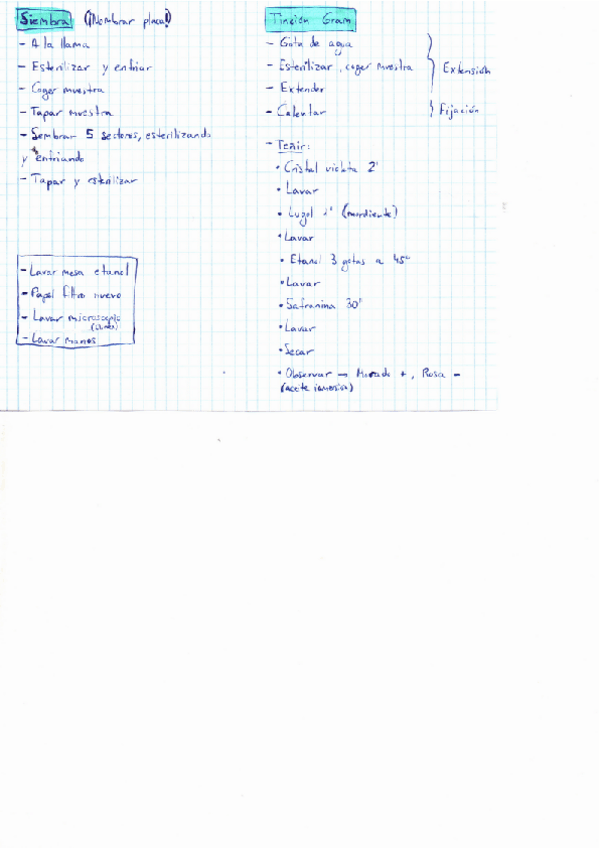 Siembra (¡Nombrar placa!)
- A la llama
- Esterilizar y enfriar
- Coger muestra
- Tapar muestra
- Sembrar 5 sectores, esterilizando
y enfriando
- Tapar y esterilizar
- Lavar mesa etanol
- Papel filtro nuevo
- Lavar microscopio
- Lavar manos
Tinción Gram
- Gota de agua
- Esterilizar, coger muestra
- Extender
Extensión
- Calentar
Fijación
- Teñir:
• Cristal violeta 2'
• Lavar
• Lugol 1' (mordiente)
• Lavar
• Etanol 3 gotas a 45º
• Lavar
• Safranina 30"
• Lavar
• Secar
• Observar → Morado +, Rosa -
(aceite inmersión)